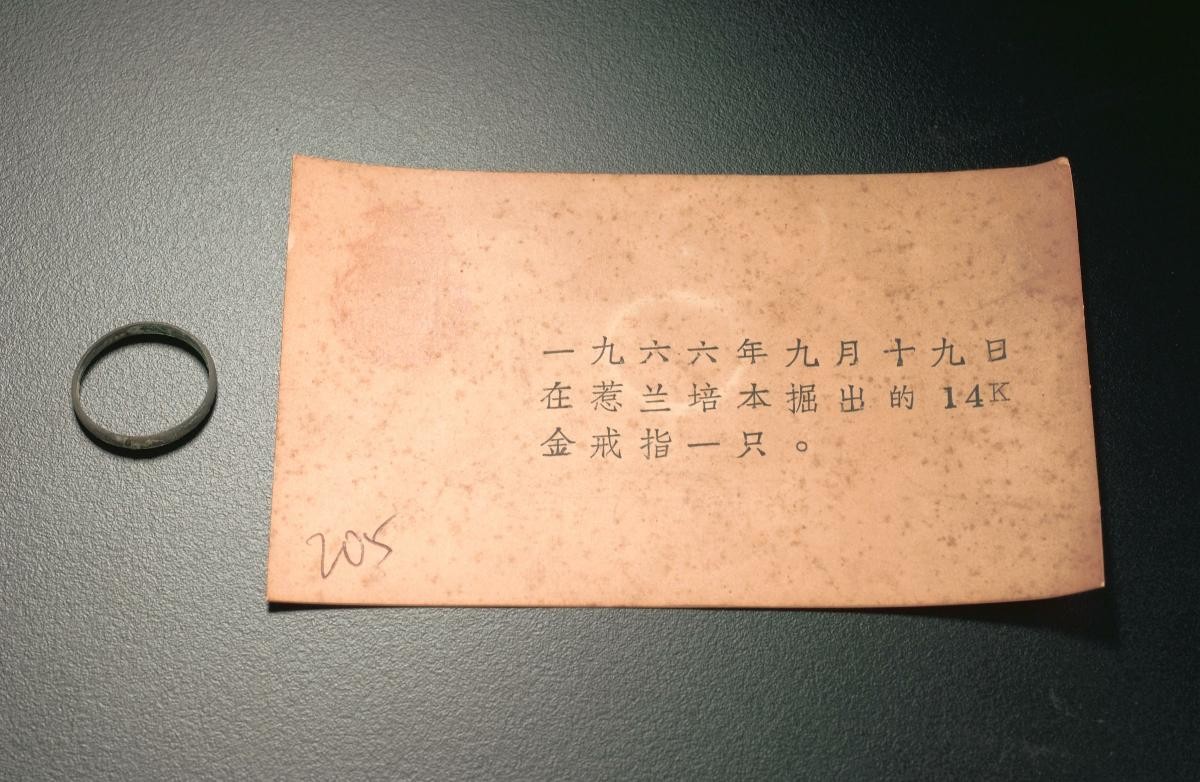 一九六六年九月十九日
在惹兰培本掘出的14K
金戒指一只。
205